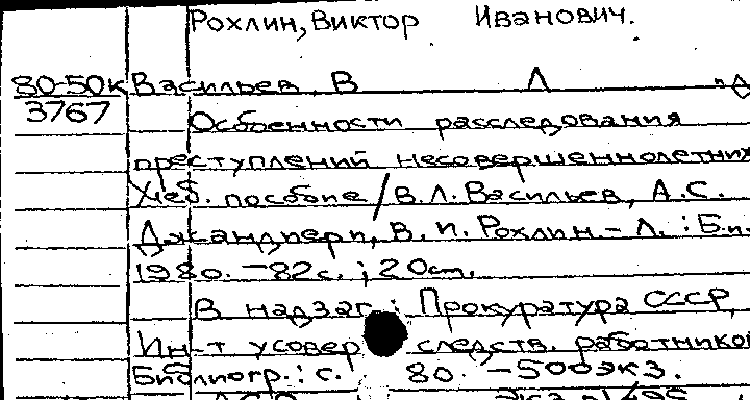 Рохлин, Виктор Иванович.
80-50к Васильев, В Л
3767
Особенности расследования
преступлений несовершеннолетних
Учеб. пособие / В.Л. Васильев, А.С.
В.И. Рохлин. - Л. : Б.и.
1980. - 82 с. ; 20 см.
В надзаг. : Прокуратура СССР,
Ин-т усовер следств. работников
Библиогр.: с. 80. - 500 экз.